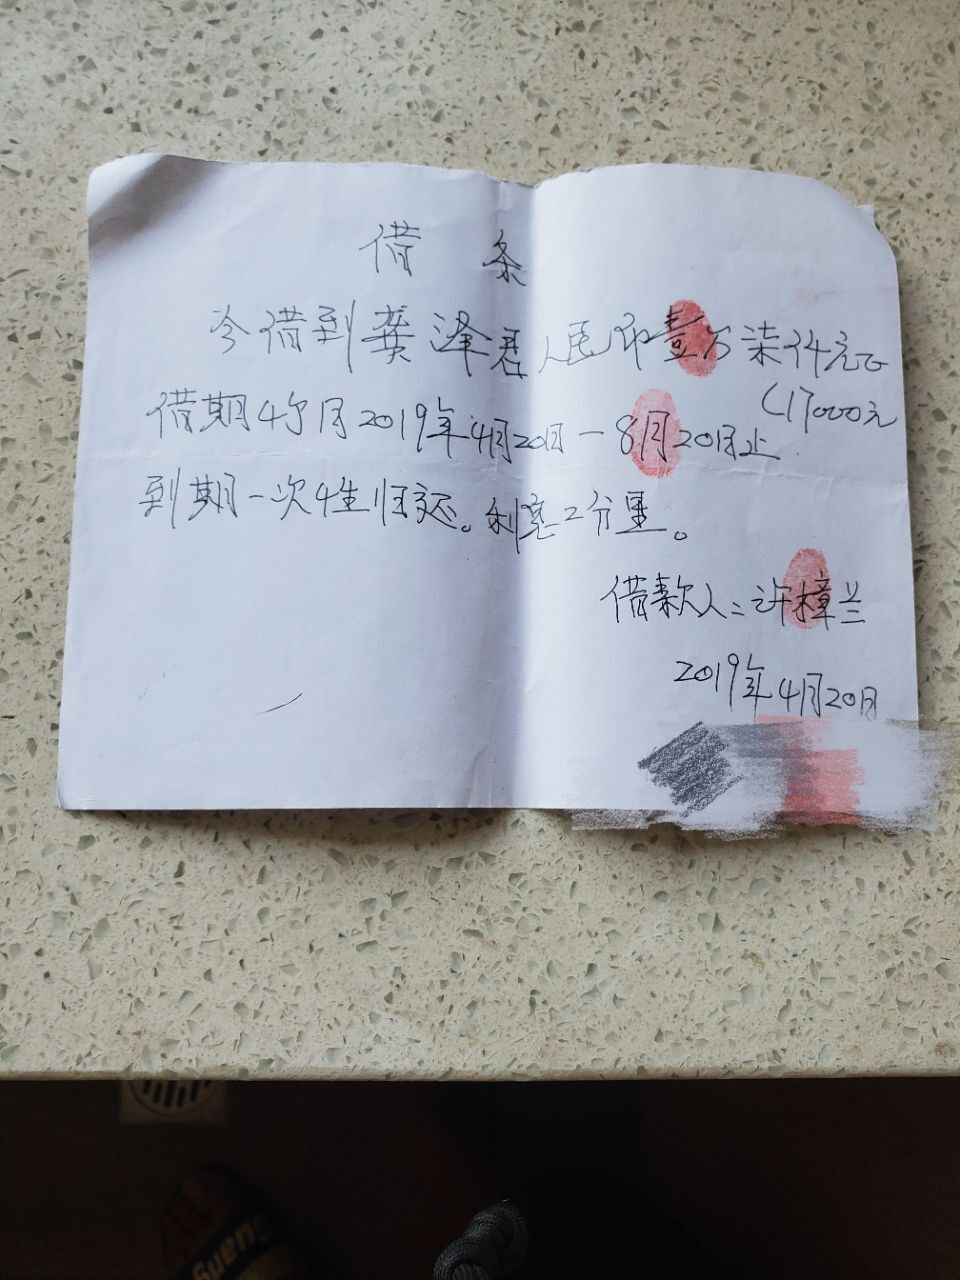 借 条
今借到龚泽君人民币壹万柒仟元正
(17000元
借期4个月2019年4月20日一8月20日止
到期一次性归还。利息2分里。
借款人:许樟兰
2019年4月20日
Guang